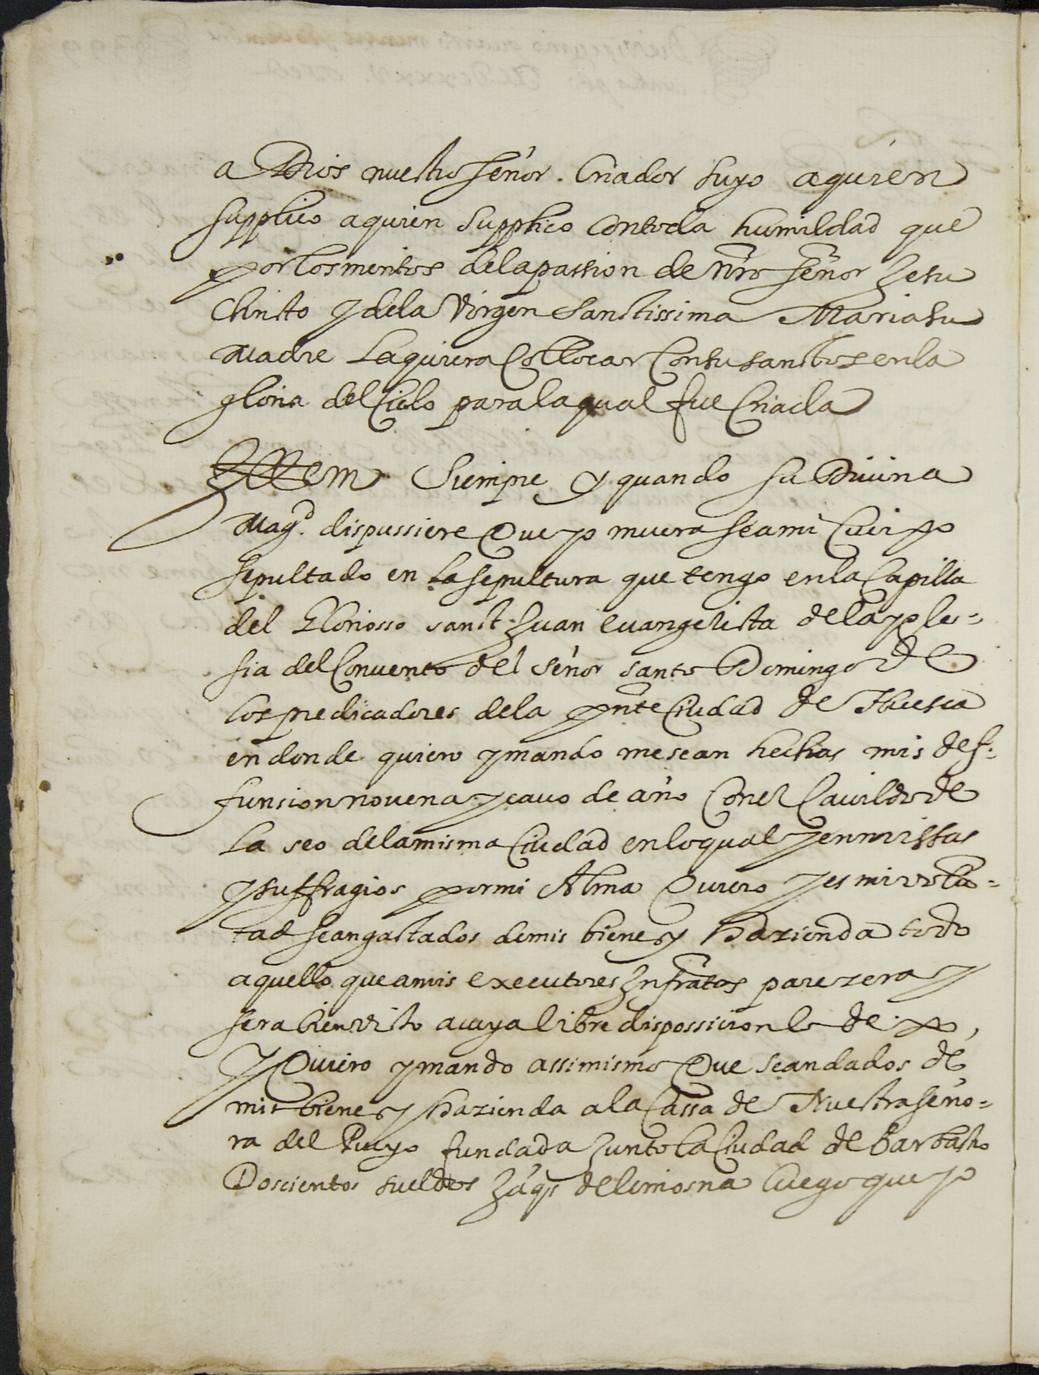 a Dios nuestro señor. Criador suyo aquien
supplico aquien supplico contoda humildad que
porlosmeritos delapassion de nro señor Jesu
Christo y dela Virgen Sanctissima Mariasu
Madre laquiera Collocar Consusanctos enla
gloria delCielo paralaqual fue Criada
Ittem Siempre y quando su Diuina
Magd. dispussiere Que yo muera seami Cuerpo
sepultado en la sepultura que tengo enlaCapilla
del Gloriosso sanct Juan euangelista delaygles-
sia delConuento del señor santo Domingo de
los predicadores dela pnte Ciudad de Huesca
en donde quiero ymando mesean hechas mis def-
funsion nouena y cauo de año Conel Cauildo de
La seo delamisma Ciudad enloqual y enmissas
ysuffragios pormi Alma Quiero y es mi volu-
tad seangastados demis bienes y hazienda todo
aquello queamis executores Infratos parezera y
sera bienvisto acuya libre dispossicion lo dexo,
y Quiero ymando assimismo Que seandados de
mis bienes y hazienda ala Cassa de Nuestra seño-
ra del Pueyo fundada Junto la Ciudad de barbastro
Doscientos sueldos Jaqs delimosna luego que yo